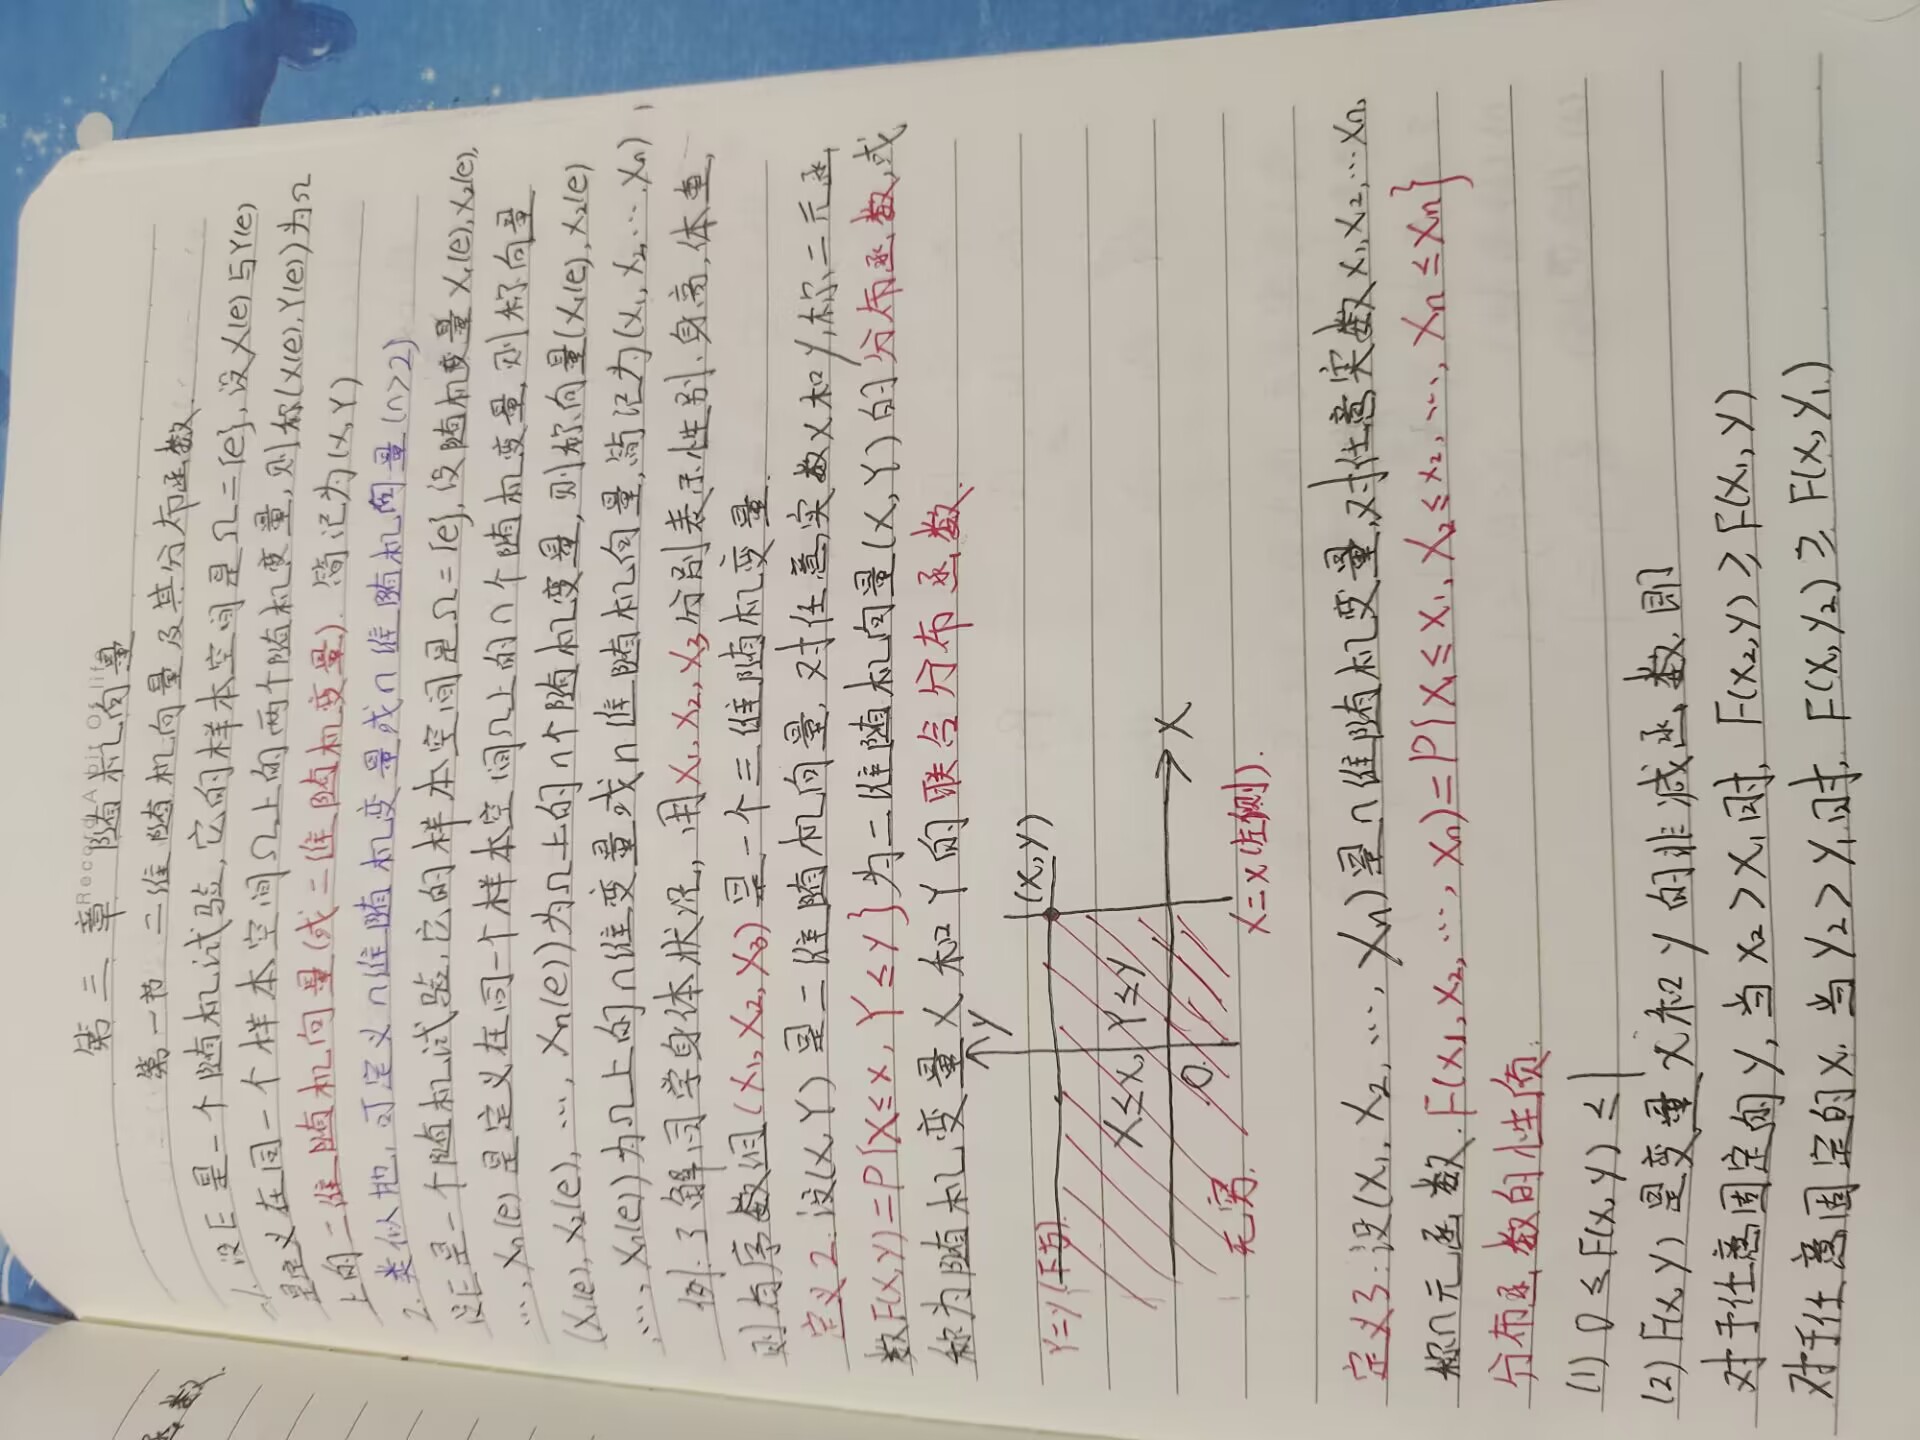 Record A bit Of life
第三章 随机向量
第一节 二维随机向量及其分布函数.
1. 设E是一个随机试验,它的样本空间是Ω={e},设X(e)与Y(e)
是定义在同一个样本空间Ω上的两个随机变量,则称(X(e),Y(e))为Ω
上的二维随机向量(或二维随机变量).简记为(X,Y)
2.类似地,可定义n维随机变量或n维随机向量(n>2)
设E是一个随机试验,它的样本空间是Ω={e},设随机变量X₁(e),X₂(e),
…,Xn(e)是定义在同一个样本空间Ω上的n个随机变量,则称向量
(X₁(e),X₂(e),…,Xn(e))为Ω上的n个随机变量,则称向量(X₁(e),X₂(e)
,…,Xn(e))为Ω上的n维变量或n维随机向量,简记为(X₁,X₂,…Xn),
例:了解同学身体状况,用X₁,X₂,X₃分别表示性别、身高、体重,
则有序数组(X₁,X₂,X₃)是一个三维随机变量.
定义2:设(X,Y)是二维随机向量,对任意实数X和y,称二元函
数F(x,y)=P{X≤x,Y≤y}为二维随机向量(X,Y)的分布函数,或
称为随机变量X和Y的联合分布函数.
y
(x,y)
Y=y(下方).
X≤x, Y≤y
0.
X
无穷.
X=x(左侧).
定义3:设(X₁,X₂,…,Xn)是n维随机变量,对任意实数X₁,X₂,…Xn,
称n元函数.F(x₁,x₂,…,xn)=P{X₁≤x₁,X₂≤x₂,…,Xn≤xn}
分布函数的性质:
(1) 0≤F(x,y)≤1
(2) F(x,y)是变量x和y的非减函数,即
对于任意固定的y,当x₂>x₁时,F(x₂,y)≥F(x₁,y)
对于任意固定的x,当y₂>y₁时,F(x,y₂)≥F(x,y₁)